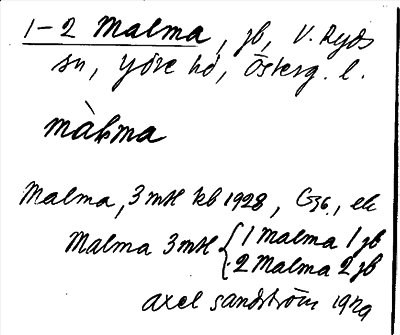 1-2 Malma, jb, V. Ryds
sn, Ydre hd, Österg. l.
màlma
Malma, 3 mtl kb 1928, G36, ek
Malma 3 mtl { 1 Malma 1 jb
2 Malma 2 jb
Axel Sandström 1929